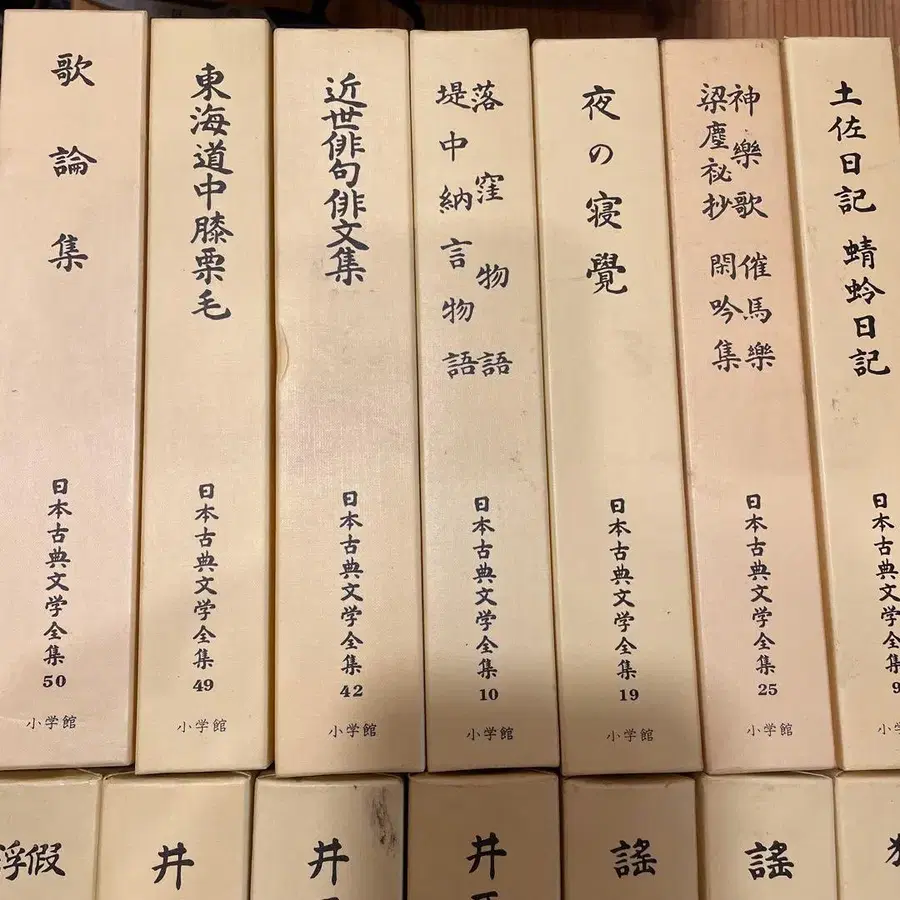 歌論集
日本古典文学全集
50
小学館
東海道中膝栗毛
日本古典文学全集
49
小学館
近世俳句俳文集
日本古典文学全集
42
小学館
落窪物語
堤中納言物語
日本古典文学全集
10
小学館
夜の寝覺
日本古典文学全集
19
小学館
神樂歌 催馬樂
梁塵秘抄 閑吟集
日本古典文学全集
25
小学館
土佐日記 蜻蛉日記
日本古典文学全集
9
小学
假
浮
井
井
井
謠
謠